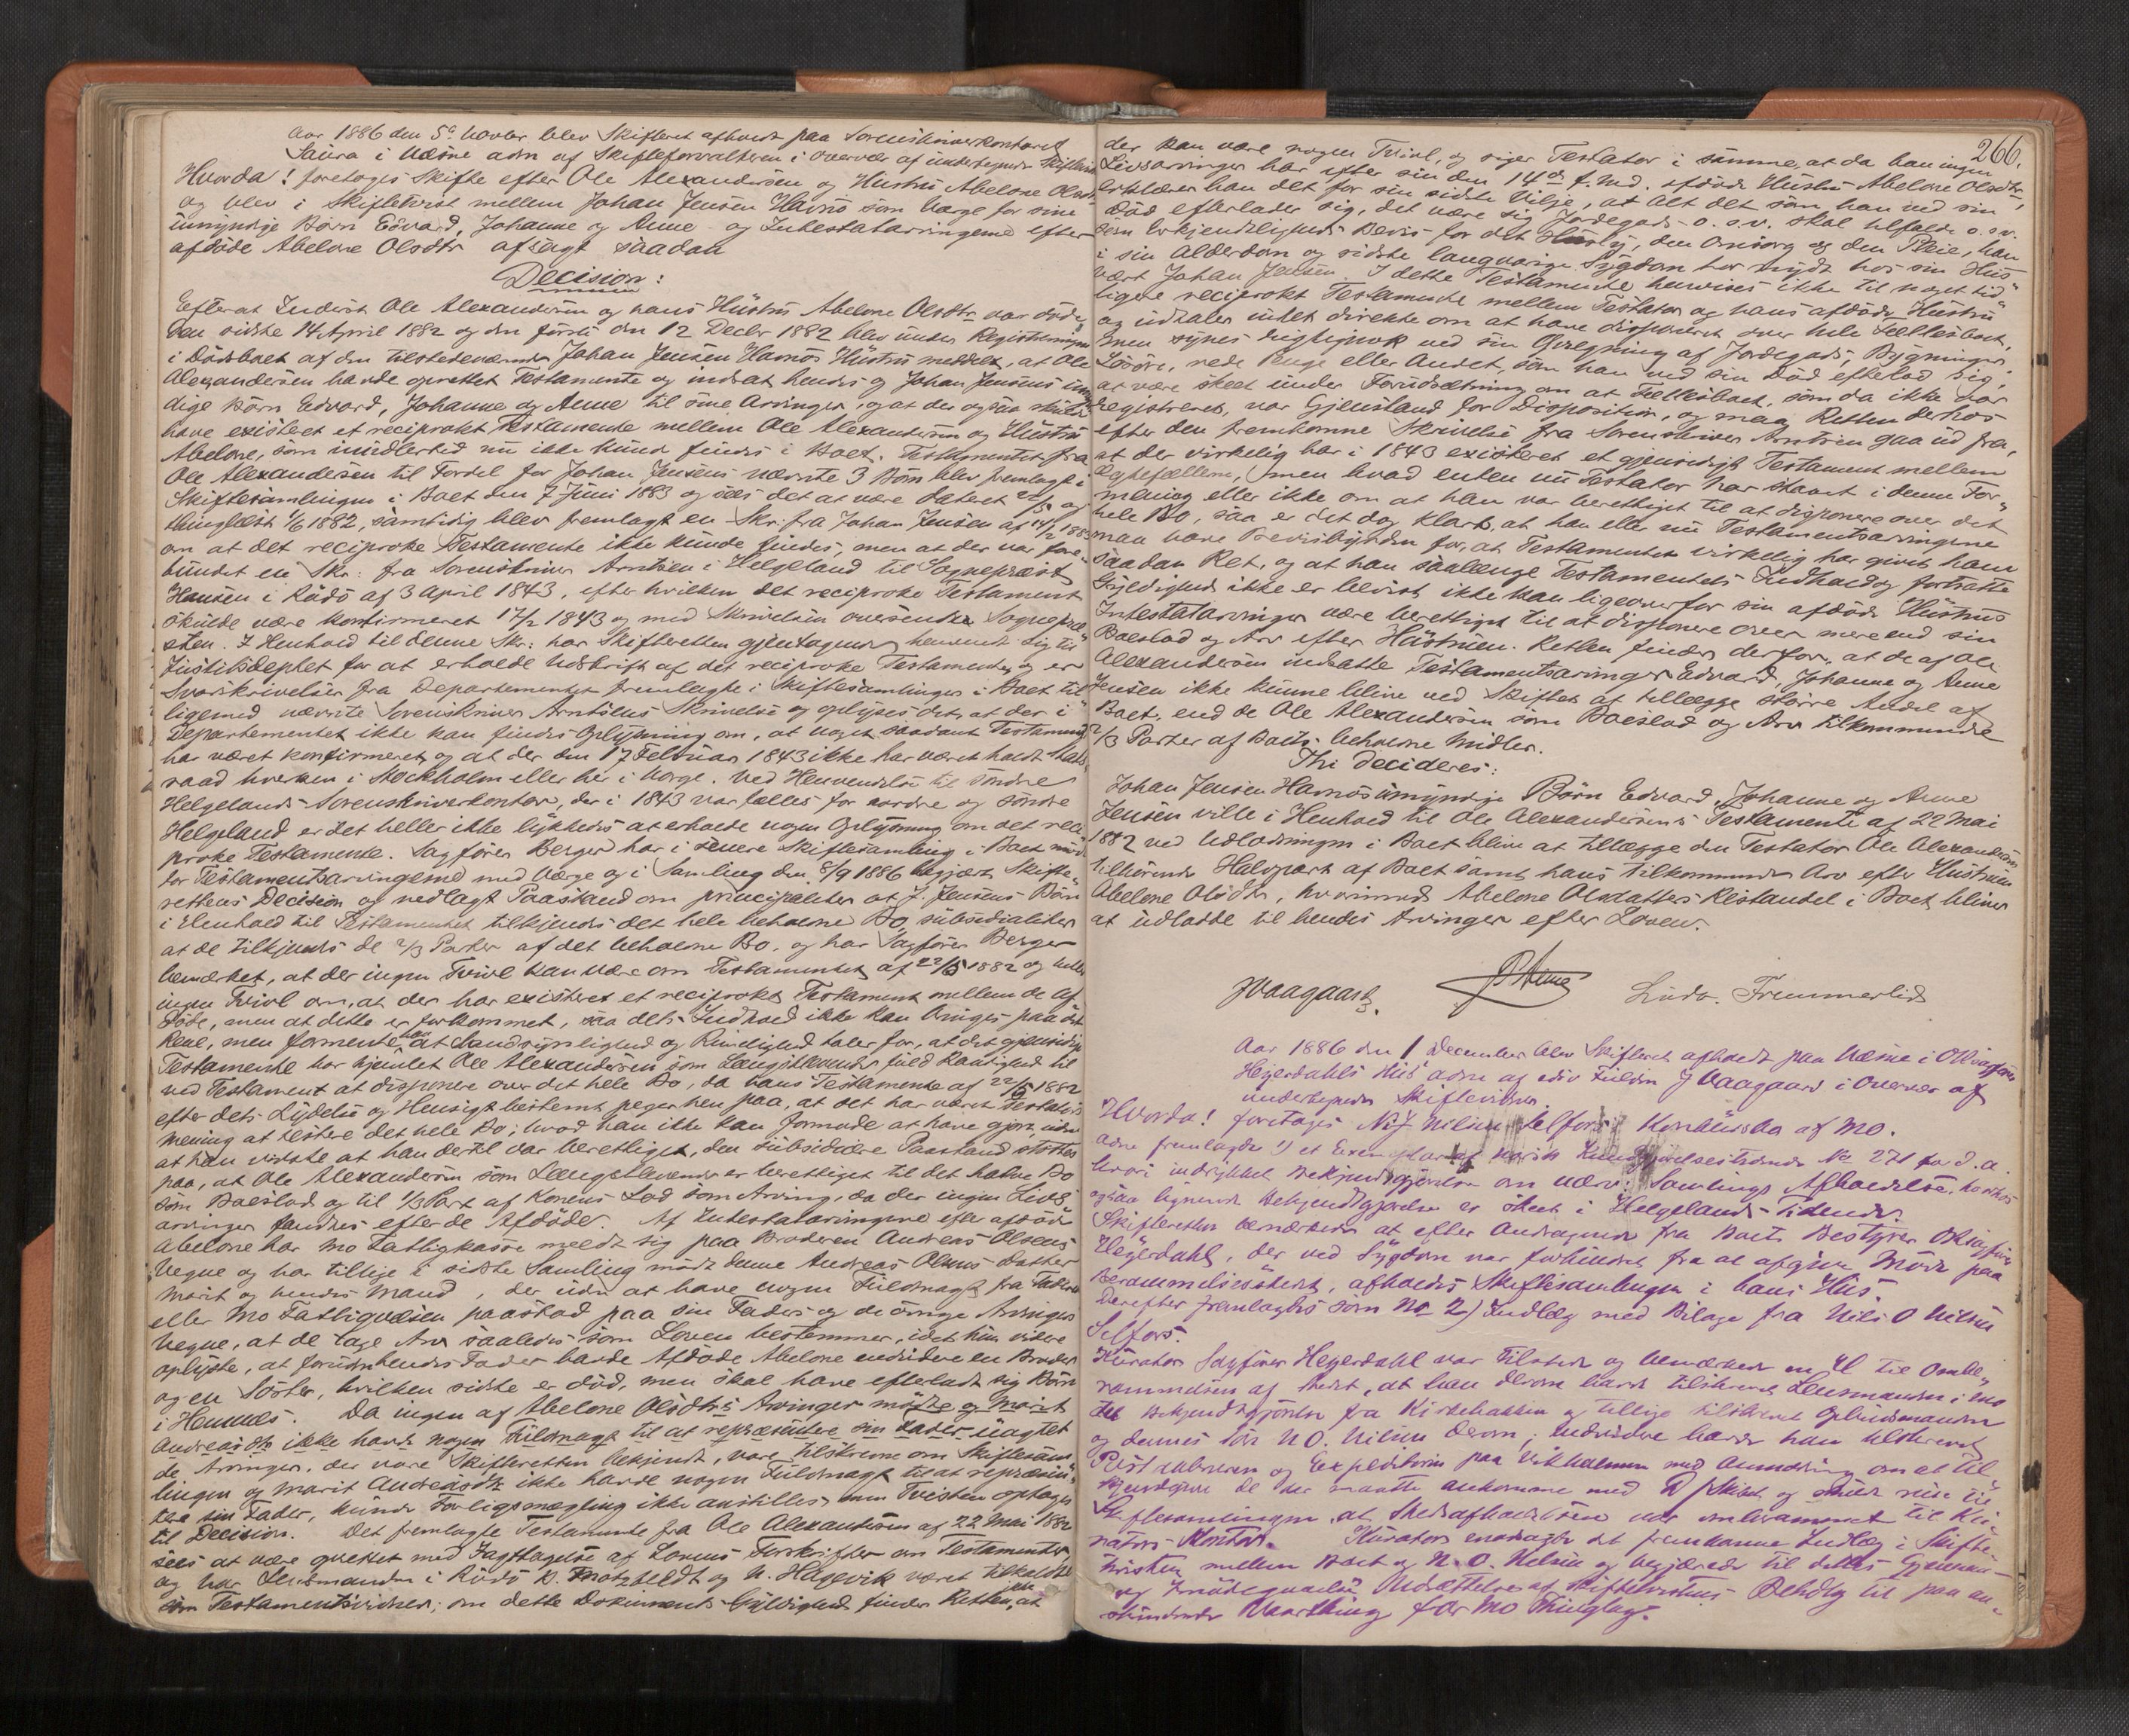 Aar 1886 den 5te Novbr blev Skifteret afholdt paa Sorenskriverkontoret
Saura i Næsne adm af Skifteforvalteren i Overvær af undertegnede Skiftevidner
Hvorda! foretoges Skifte efter Ole Alexandersen og Hustru Abelone Olsdtr
og blev i Skiftetvist mellem Johan Jensen Havnø som Værge for sine
umyndige Børn Edvard, Johanne og Anne og Intestatarvingerne efter
afdøde Abelone Olsdtr afsagt saadan
Decision:
Efterat Inderst Ole Alexandersen og hans Hustru Abelone Olsdtr var døde,
den sidste 14 April 1882 og den første den 12 Decbr 1882 blev under Registreringen
i Dødsboet af den tilstedeværende Johan Jensen Havnøs Hustru meddelt, at Ole
Alexandersen havde oprettet Testamente og indsat hendes og Johan Jensens umyn
dige Børn Edvard, Johanne og Anne til sine Arvinger, og at der ogsaa skulde
have existeret et reciprokt Testamente mellem Ole Alexandersen og Hustru
Abelone, som imidlertid nu ikke kunde findes i Boet. Testamentet fra
Ole Alexandersen til Fordel for Johan Jensens nævnte 3 Børn blev fremlagt i
Skiftesamlingen i Boet den 7 Juni 1883 og sees det at være dateret 22/5 og
thinglæst 1/6 1882, samtidig blev fremlagt en Skr: fra Johan Jensen af 14/2 1883
om at det reciproke Testamente ikke kunde findes, men at der var fore"
fundet en Skr: fra Sorenskriver Arntsen i Helgeland til Sognepræst
Hansen i Rødø af 3 April 1843, efter hvilken det reciproke Testament
skulde være konfirmeret 17/2 1843 og med Skrivelsen oversendt Sognepræ"
sten. I Henhold til denne Skr: har Skifteretten gjentagende henvendt sig til
Justitsdeptet for at erholde Udskrift af det reciproke Testamente, og er
Svarskrivelser fra Departementet fremlagte i Skiftesamlinger i Boet til
ligemed nævnte Sorenskriver Arntsens Skrivelse og oplyses det, at der i
Departementet ikke kan findes Oplysning om, at noget saadant Testament
har været konfirmeret, og at der den 17 Februar 1843 ikke har været holdt Stats
raad hverken i Stockholm eller her i Norge. Ved Henvendelse til søndre
Helgelands Sorenskriverkontor, der i 1843 var fælles for nordre og søndre
Helgeland er det heller ikke lykkedes at erholde nogen Oplysning om det reci
proke Testamente. Sagfører Berger har i senere Skiftesamling i Boet mødt
for Testamentsarvingerne med Værge og i Samling den 8/9 1886 begjært Skifte
rettens Decision og nedlagt Paastand om principaliter at J. Jensens Børn
i Henhold til Testamentet tilkjendes det hele beholdne Bo, subsidialiter
at de tilkjendes de 2/3 Parter af det beholdne Bo, og har Sagfører Berger
bemærket, at der ingen Tvivl kan være om Testamentet af 22/5 1882 og heller
ingen Tvivl om, at der har existeret et reciprokt Testament mellem de af
døde, men at dette er forkommet, saa dets Indhold ikke kan bringes paa det
Rene, men formente han at Sandsynlighed og Rimelighed taler for, at det gjensidige
Testamente har hjemlet Ole Alexandersen som Længstlevende fuld Raadighed til
ved Testament at disponere over det hele Bo, da hans Testamente af 22/5 1882
efter dets Lydelse og Hensigt bestemt peger hen paa, at det har været Testators
Mening at testere det hele Bo; hvad han ikke kan formode at have gjort, uden
at han vidste at han dertil var berettiget, den subsidiære Paastand støttes
paa, at Ole Alexandersen som Længstlevende er berettiget til det halve Bo
som Boeslod og til 1/3 Part af Konens Lod som Arving, da der ingen Livs
arvinger fandtes efter de Afdøde. Af Intestatarvingerne efter afdøde
Abelone har Mo Fattigkasse meldt sig paa Broderen Andreas Olsens
Vegne og har tillige i sidste Samling mødt denne Andreas Olsens Datter
Marit og hendes Mand, der uden at have nogen Fuldmagt fra Faderen
eller Mo Fattigvæsen paastod paa sin Faders og de øvrige Arvingers
Vegne, at de tage Arv saaledes som Loven bestemmer, idet hun videre
oplyste, at foruden hendes Fader havde Afdøde Abelone endvidere en Broder
og en Søster, hvilken sidste er død, men skal have efterladt sig Børn
i Hemnes. Da ingen af Abelone Olsdtrs Arvinger mødte og Marit
Andreasdtr ikke havde nogen Fuldmagt til at repræsentere sin Fader uagtet
de Arvinger, der vare Skifteretten bekjendt, vare tilskrevne om Skiftesam
lingen og Marit Andreasdtr ikke havde nogen Fuldmagt til at repræsen"
tere sin Fader, kunde Forligsmægling ikke anstilles, men Tvisten optoges
til Decision. Det fremlagte Testamente fra Ole Alexandersen af 22 Mai 1882
sees at være oprettet med Iagttagelse af Lovens Forskrifter om Testamenter
og har Lensmanden i Rødø P. Motzfeldt og N. Hagevik været tilkaldte
som Testamentsvidner; om dette Dokuments Gyldighed finder Retten, at
266.
der kan være nogen Tvivl, og siger Testator i samme, at da han ingen
Livsarvinger har efter sin den 14de f. Md. afdøde Hustru Abelone Olsdtr,
erklærer han det for sin sidste Vilje, at Alt det som han ved sin
Død efterlader sig, det være sig Jordegods o.s.v. skal tilfalde o.s.v.
som Erkjendtligheds Bevis for det Husly, den Omsorg og den Pleie, han
i sin Alderdom og sidste langvarige Sygdom har nydt hos sin Hus
vært Johan Jensen. I dette Testamente henvises ikke til noget tid"
ligere reciprokt Testamente mellem Testator og hans afdøde Hustru
og udtaler intet direkte om at have disponeret over hele Fællesboet,
men synes rigtignok ved sin Opregning af Jordegods, Bygninger,
Løsøre, rede Penge eller Andet, som han ved sin Død efterlod sig,
at være skeet under Forudsætning om at Fællesboet, som da ikke var
registreret, var Gjenstand for Disposition, og maa Retten derhos
efter den fremkomne Skrivelse fra Sorenskriver Arntsen gaa ud fra,
at der virkelig har i 1843 existeret et gjensidigt Testament mellem
Ægtefællerne, men hvad enten nu Testator har staaet i denne For"
mening eller ikke om at han var berettiget til at disponere over det
hele Bo, saa er det dog klart, at han eller nu Testamentsarvingerne
maa have Bevisbyrden for, at Testamentet virkelig har givet ham
saadan Ret, og at han saalænge Testamentets Indhold og fortsatte
Gyldighed ikke er bevist, ikke kan ligeoverfor sin afdøde Hustrus
Intestatarvinger være berettiget til at disponere over mere end sin
Boeslod og Arv efter Hustruen. Retten finder derfor, at de af Ole
Alexandersen indsatte Testamentsarvinger Edvard, Johanne og Anne
Jensen ikke kunne blive ved Skiftet at tillægge større Andel af
Boet, end de Ole Alexandersen som Boeslod og Arv tilkommende
2/3 Parter af Boets beholdne Midler.
Thi decideres:
Johan Jensen Havnøs umyndige Børn Edvard, Johanne og Anne
Jensen ville i Henhold til Ole Alexandersens Testamente af 22 Mai
1882 ved Udlodningen i Boet blive at tillægge den Testator Ole Alexandersen
tilhørende Halvpart af Boet samt hans tilkommende Arv efter Hustruen
Abelone Olsdtr, hvorimod Abelone Olsdatters Restandel i Boet bliver
at udlodde til hendes Arvinger efter Loven.
JVaagaard.
Ludv. Fremmerlid
Aar 1886 den 1 December blev Skifteret afholdt paa Næsne i ORsagfører
Heyerdahls Hus adm af edsv Fuldm J Vaagaard i Overvær af
undertegnede Skiftevidner.
Hvorda! foretoges Nils Nilsen Selfors Konkursbo af Mo.
Adm fremlagde 1) et Exemplar af Norsk Kundgjørelsestidende No 271 for d. a.
hvori indrykket Bekjendtgjørelse om nærv: Samlings Afholdelse, hvorhos
ogsaa lignende Bekjendtgjørelse er skeet i Helgelands Tidende.
Skifteretten bemærkede at efter Andragende fra Boets Bestyrer ORsagfører
Heyerdahl, der ved Sygdom var forhindret fra at afgive Møde paa
Berammelsesstedet, afholdes Skiftesamlingen i hans Hus.
Derefter fremlagdes som No 2) Indlæg med Bilage fra Nils O Nilsen
Selfors.
Kurator Sagfører Heyerdahl var tilstede og bemærkede m H til Ombe"
rammelsen af Stedet, at han derom havde tilskrevet Lensmanden i Mo
til Bekjendtgjørelse fra Kirkebakken og tillige tilskrevet Opbudsmanden
og dennes Søn N O. Nilsen derom; endvidere havde han tilskrevet
Postaabneren og Expeditøren paa Vikholmen med Anmodning om at til"
kjendegive de der maatte ankomme med D/Skibet og skulde reise til
Skiftesamlingen, at Stedsafholdelsen var omberammet til Ku"
rators Kontor. Kurator modtager det fremkomne Indlæg i Skifte
tvisten mellem Boet og N. O. Nilsen og begjærede til dettes Gjennem
og Imødegaaelse Udsættelse af Skiftetvistens Behdlg til paa an"
stundende Vaarthing for Mo Thinglag.